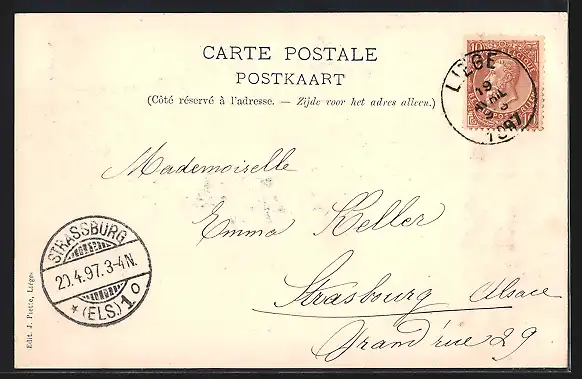 CARTE POSTALE
POSTKAART
(Côté réservé à l'adresse. — Zijde voor het adres alleen.)
LIÈGE
19
AVRIL
1897
10
10
Mademoiselle
Emma Keller
Strasburg Alsace
Grand'rue 29
STRASSBURG
20.4.97.3-4N.
* (ELS) 1 o
Edit. J. Piette, Liége.